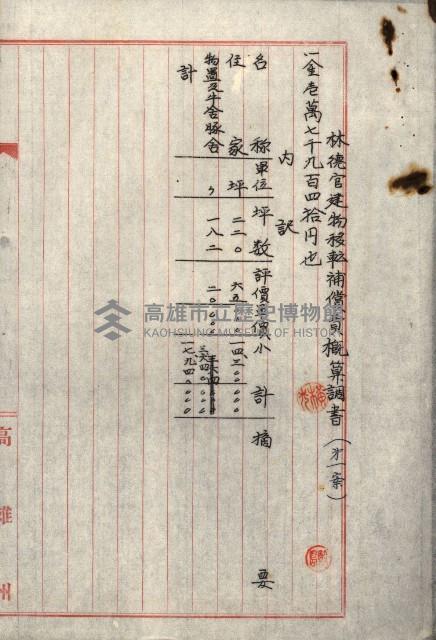 林德官建物移転補償費概算調書（才一案）
一金壱萬七千九百四拾円也
内訳
名称 單位 坪数 評價單價 小計 摘要
住家 坪 二二〇 六五〇〇 一四三〇〇〇〇
物置及牛舎豚舎 〃 一八二 二〇〇〇 三六四〇〇〇
計 一七九四〇〇〇
高雄州
高雄市立歷史博物館
KAOHSIUNG MUSEUM OF HISTORY